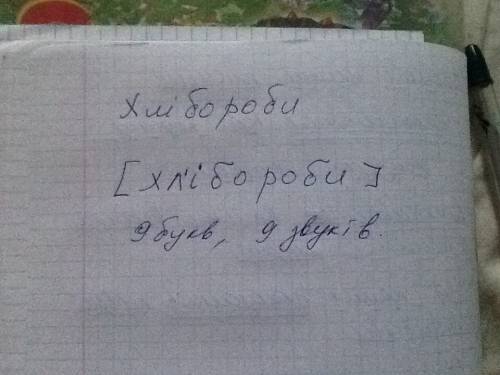 Хлібороби
[хл'ібороби]
9 букв, 9 звуків.